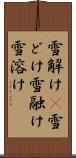 雪解け❘雪
どけ雪融け
雪溶け